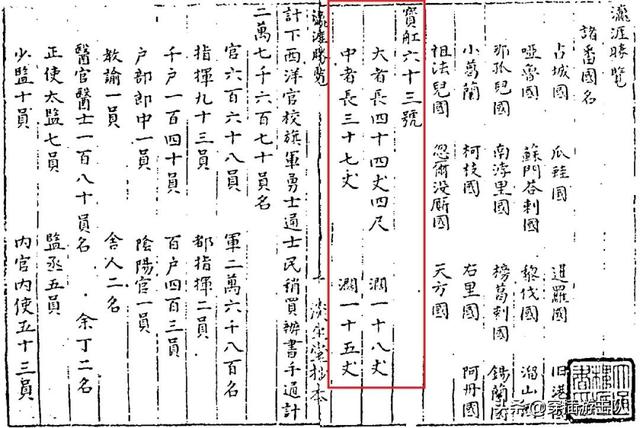 瀛涯勝覽
諸番國名
占城國 瓜哇國 暹羅國 旧港
啞魯國 蘇門荅剌國 黎伐國 溜山
那孤兒國 南浡里國 榜葛剌國 錫蘭國
小葛蘭 柯枝國 古里國 阿丹國
祖法兒國 忽爾没厮國 天方國
寶舡六十三號
大者長四十四丈四尺 濶一十八丈
中者長三十七丈 濶一十五丈
瀛涯勝覽 淡生堂抄本
計下西洋官校旗軍勇士通士民稍買辦書手通計
二萬七千六百七十員名
官六百六十八員 軍二萬六千八百名
指揮九十三員 都指揮二員
千户一百四十員 百户四百三員
户部郎中一員 陰陽官一員
教諭一員 舍人二名
醫官醫士一百八十員名 余丁二名
正使太監七員 監丞五員
少監十員 内官内使五十三員